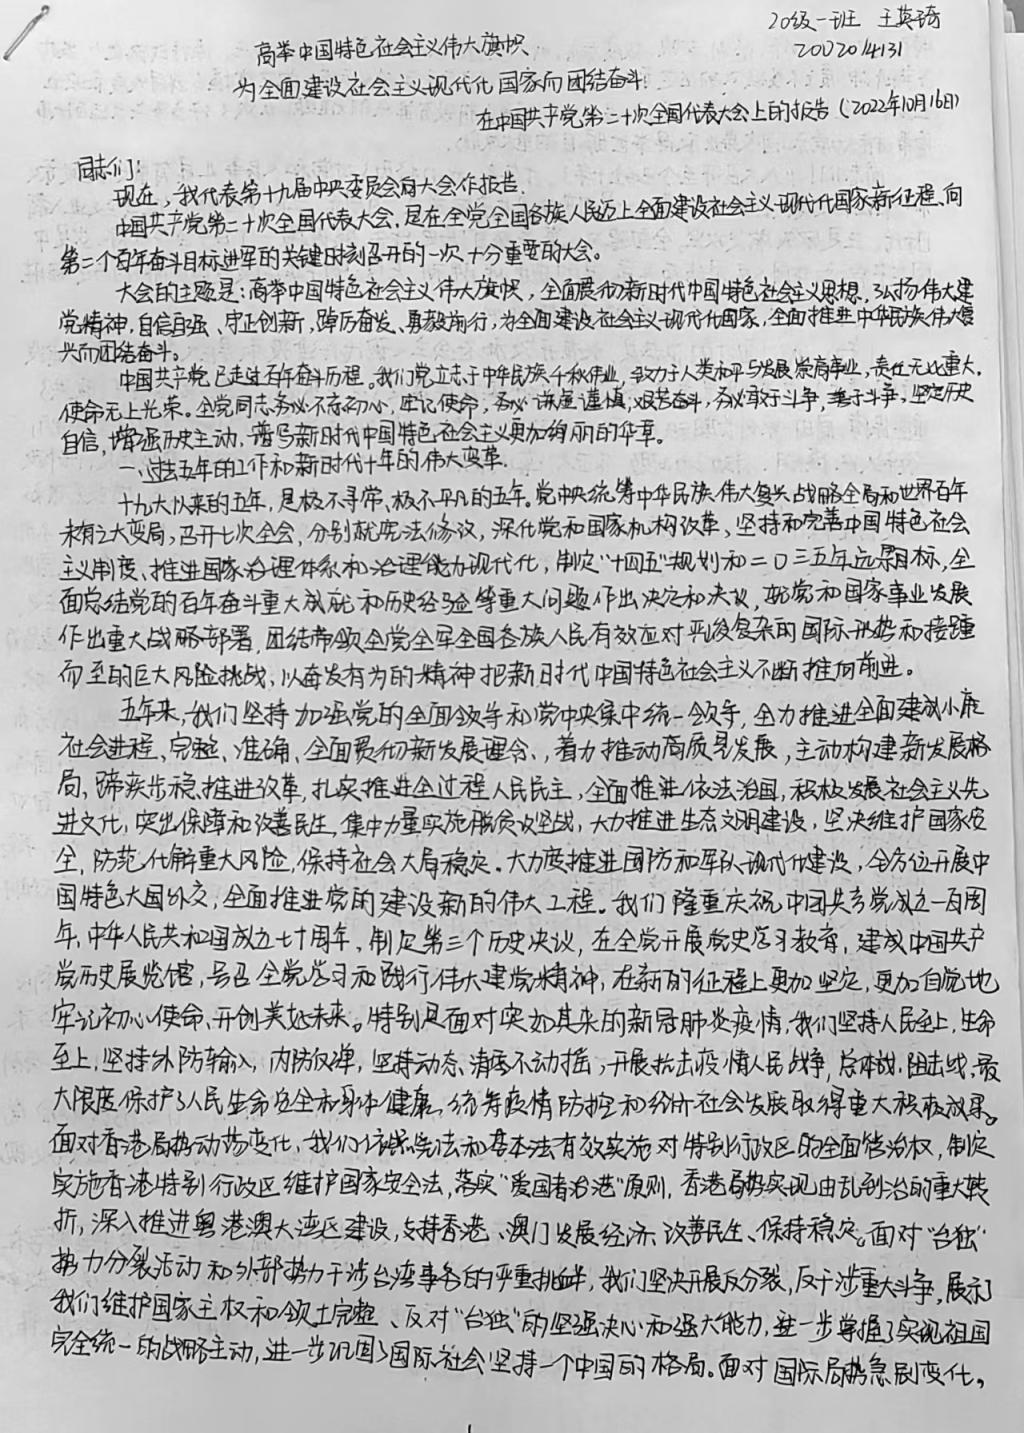 20级一班 王英琦
2012014131
高举中国特色社会主义伟大旗帜
为全面建设社会主义现代化国家而团结奋斗
在中国共产党第二十次全国代表大会上的报告(2022年10月16日)
同志们:
现在,我代表第十九届中央委员会向大会作报告.
中国共产党第二十次全国代表大会,是在全党全国各族人民迈上全面建设社会主义现代化国家新征程、向
第二个百年奋斗目标进军的关键时刻召开的一次十分重要的大会。
大会的主题是:高举中国特色社会主义伟大旗帜,全面贯彻新时代中国特色社会主义思想,弘扬伟大建
党精神,自信自强、守正创新,踔厉奋发、勇毅前行,为全面建设社会主义现代化国家,全面推进中华民族伟大复
兴而团结奋斗。
中国共产党已走过百年奋斗历程。我们党立志于中华民族千秋伟业,致力于人类和平与发展崇高事业,责任无比重大,
使命无上光荣。全党同志务必不忘初心,牢记使命,务必谦虚谨慎,艰苦奋斗,务必敢于斗争,善于斗争,坚定历史
自信,增强历史主动,谱写新时代中国特色社会主义更加绚丽的华章。
一、过去五年的工作和新时代十年的伟大变革.
十九大以来的五年,是极不寻常、极不平凡的五年。党中央统筹中华民族伟大复兴战略全局和世界百年
未有之大变局,召开七次全会,分别就宪法修议,深化党和国家机构改革、坚持和完善中国特色社会
主义制度、推进国家治理体系和治理能力现代化,制定“十四五”规划和二〇三五年远景目标,全
面总结党的百年奋斗重大成就和历史经验等重大问题作出决定和决议,就党和国家事业发展
作出重大战略部署,团结带领全党全军全国各族人民有效应对严峻复杂的国际形势和接踵
而至的巨大风险挑战,以奋发有为的精神把新时代中国特色社会主义不断推向前进。
五年来,我们坚持加强党的全面领导和党中央集中统一领导,全力推进全面建成小康
社会进程、完整、准确、全面贯彻新发展理念、,着力推动高质量发展,主动构建新发展格
局,蹄疾步稳推进改革,扎实推进全过程人民民主,全面推进依法治国,积极发展社会主义先
进文化,突出保障和改善民生,集中力量实施脱贫攻坚战,大力推进生态文明建设,坚决维护国家安
全,防范化解重大风险,保持社会大局稳定。大力度推进国防和军队现代化建设,全方位开展中
国特色大国外交,全面推进党的建设新的伟大工程。我们隆重庆祝中国共产党成立一百周
年,中华人民共和国成立七十周年,制定第三个历史决议,在全党开展党史学习教育,建成中国共产
党历史展览馆,号召全党学习和践行伟大建党精神,在新的征程上更加坚定,更加自觉地
牢记初心使命、开创美好未来。特别是面对突如其来的新冠肺炎疫情,我们坚持人民至上,生命
至上,坚持外防输入,内防反弹,坚持动态清零不动摇,开展抗击疫情人民战争,总体战,阻击线、最
大限度保护了人民生命安全和身体健康,统筹疫情防控和经济社会发展取得重大积极成果。
面对香港局势动荡变化,我们依照宪法和基本法有效实施对特别行政区的全面管治权,制定
实施香港特别行政区维护国家安全法,落实“爱国者治港”原则,香港局势实现由乱到治的重大转
折,深入推进粤港澳大湾区建设,支持香港、澳门发展经济、改善民生、保持稳定。面对“台独”
势力分裂活动和外部势力干涉台湾事务的严重挑衅,我们坚决开展反分裂,反干涉重大斗争,展示了
我们维护国家主权和领土完整、反对“台独”的坚强决心和强大能力,进一步掌握了实现祖国
完全统一的战略主动,进一步巩固了国际社会坚持一个中国的格局。面对国际局势急剧变化,